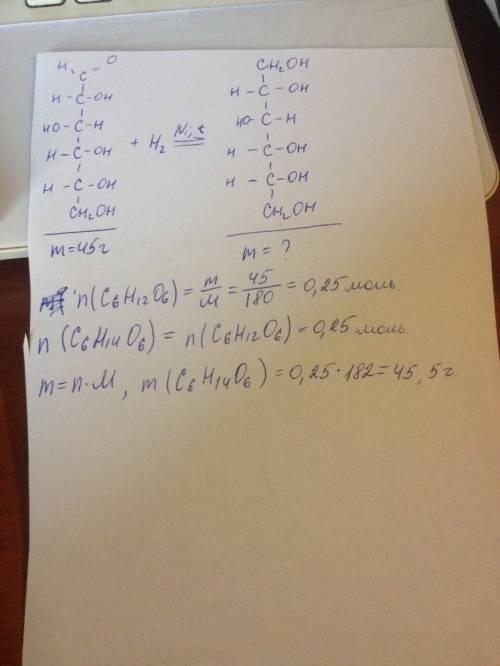 H O
C CH₂OH
H - C - OH H - C - OH
HO - C - H HO - C - H
H - C - OH + H₂ Ni, t H - C - OH
H - C - OH H - C - OH
CH₂OH CH₂OH
m = 45г m = ?
n (C₆H₁₂O₆) = m/M = 45/180 = 0,25 моль.
n (C₆H₁₄O₆) = n (C₆H₁₂O₆) = 0,25 моль.
m = n · M, m (C₆H₁₄O₆) = 0,25 · 182 = 45,5г.